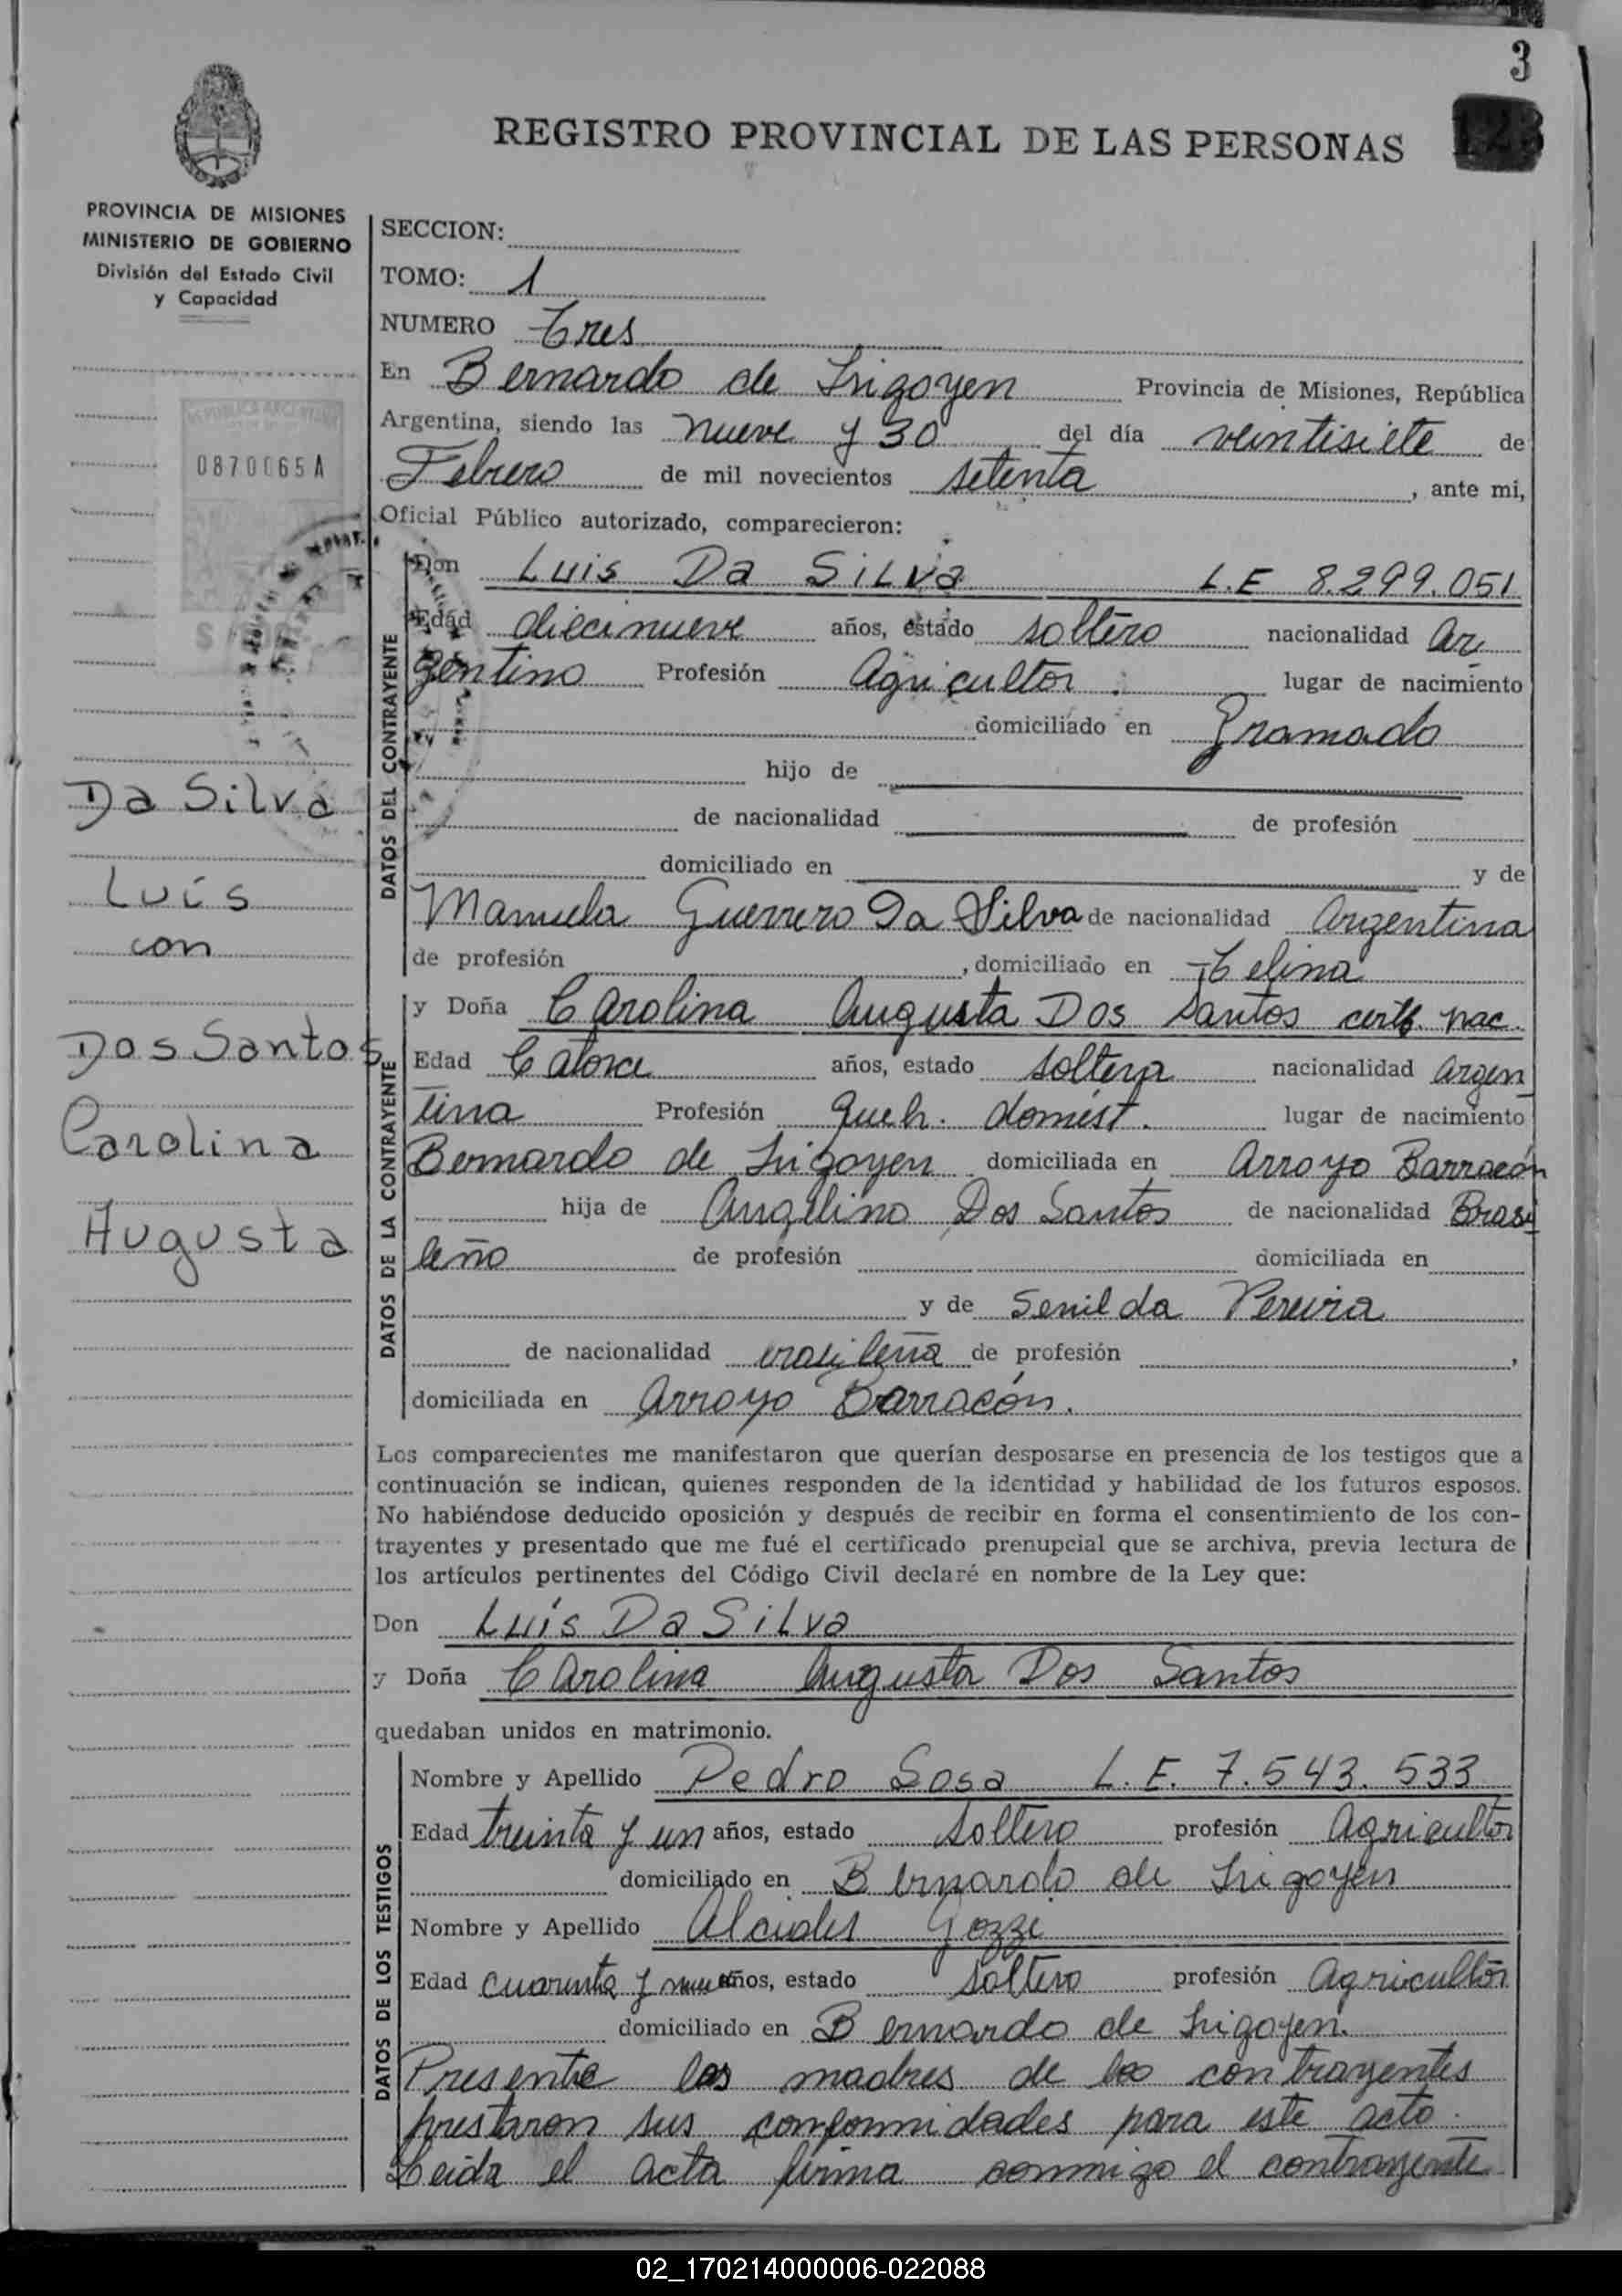 3
123
REGISTRO PROVINCIAL DE LAS PERSONAS
PROVINCIA DE MISIONES
MINISTERIO DE GOBIERNO
División del Estado Civil
y Capacidad
0870065A
Da Silva
Luis
con
Dos Santos
Carolina
Augusta
SECCION:
TOMO: 1
NUMERO Tres
En Bernardo de Irigoyen Provincia de Misiones, República
Argentina, siendo las nueve y 30 del día veintisiete de
Febrero de mil novecientos setenta, ante mi,
Oficial Público autorizado, comparecieron:
DATOS DEL CONTRAYENTE
Don Luis Da Silva L.E 8.299.051
Edad diecinueve años, estado soltero nacionalidad ar
gentino Profesión Agricultor. lugar de nacimiento
domiciliado en Gramado
hijo de
de nacionalidad de profesión
domiciliado en y de
Manuela Guerrero Da Silva de nacionalidad Argentina
de profesión , domiciliado en Telina
DATOS DE LA CONTRAYENTE
y Doña Carolina Augusta Dos Santos certf. nac.
Edad Catorce años, estado soltera nacionalidad argen
tina Profesión Queh. domést. lugar de nacimiento
Bernardo de Irigoyen domiciliada en Arroyo Barracón
hija de Angelino Dos Santos de nacionalidad Brasi
leño de profesión domiciliada en
y de Senilda Pereira
de nacionalidad brasileña de profesión ,
domiciliada en Arroyo Barracón.
Los comparecientes me manifestaron que querían desposarse en presencia de los testigos que a
continuación se indican, quienes responden de la identidad y habilidad de los futuros esposos.
No habiéndose deducido oposición y después de recibir en forma el consentimiento de los con-
trayentes y presentado que me fué el certificado prenupcial que se archiva, previa lectura de
los artículos pertinentes del Código Civil declaré en nombre de la Ley que:
Don Luis Da Silva
y Doña Carolina Augusta Dos Santos
quedaban unidos en matrimonio.
DATOS DE LOS TESTIGOS
Nombre y Apellido Pedro Sosa L.E. 7.543.533
Edad treinta y un años, estado soltero profesión Agricultor
domiciliado en Bernardo de Irigoyen
Nombre y Apellido Alcides Gozzi
Edad cuarenta y nueve años, estado soltero profesión Agricultor
domiciliado en Bernardo de Irigoyen.
Presente las madres de los contrayentes
prestaron sus conformidades para este acto.
Leida el acta firma conmigo el contrayente
02_170214000006-022088